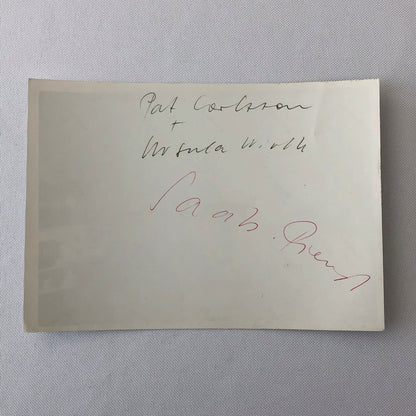 Pat Carlsson
+
Ursula Wirth
Saab.